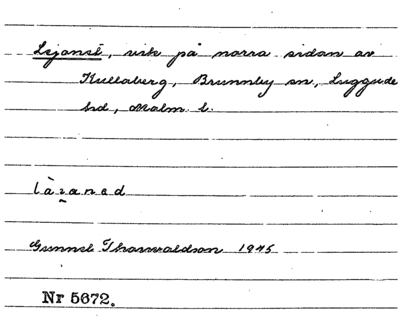 vik på norra sidan av
Kullaberg, Brunnby sn, Luggude
hd, Malm. l.
Gunnel Thorwaldson 1945
Nr 5672.